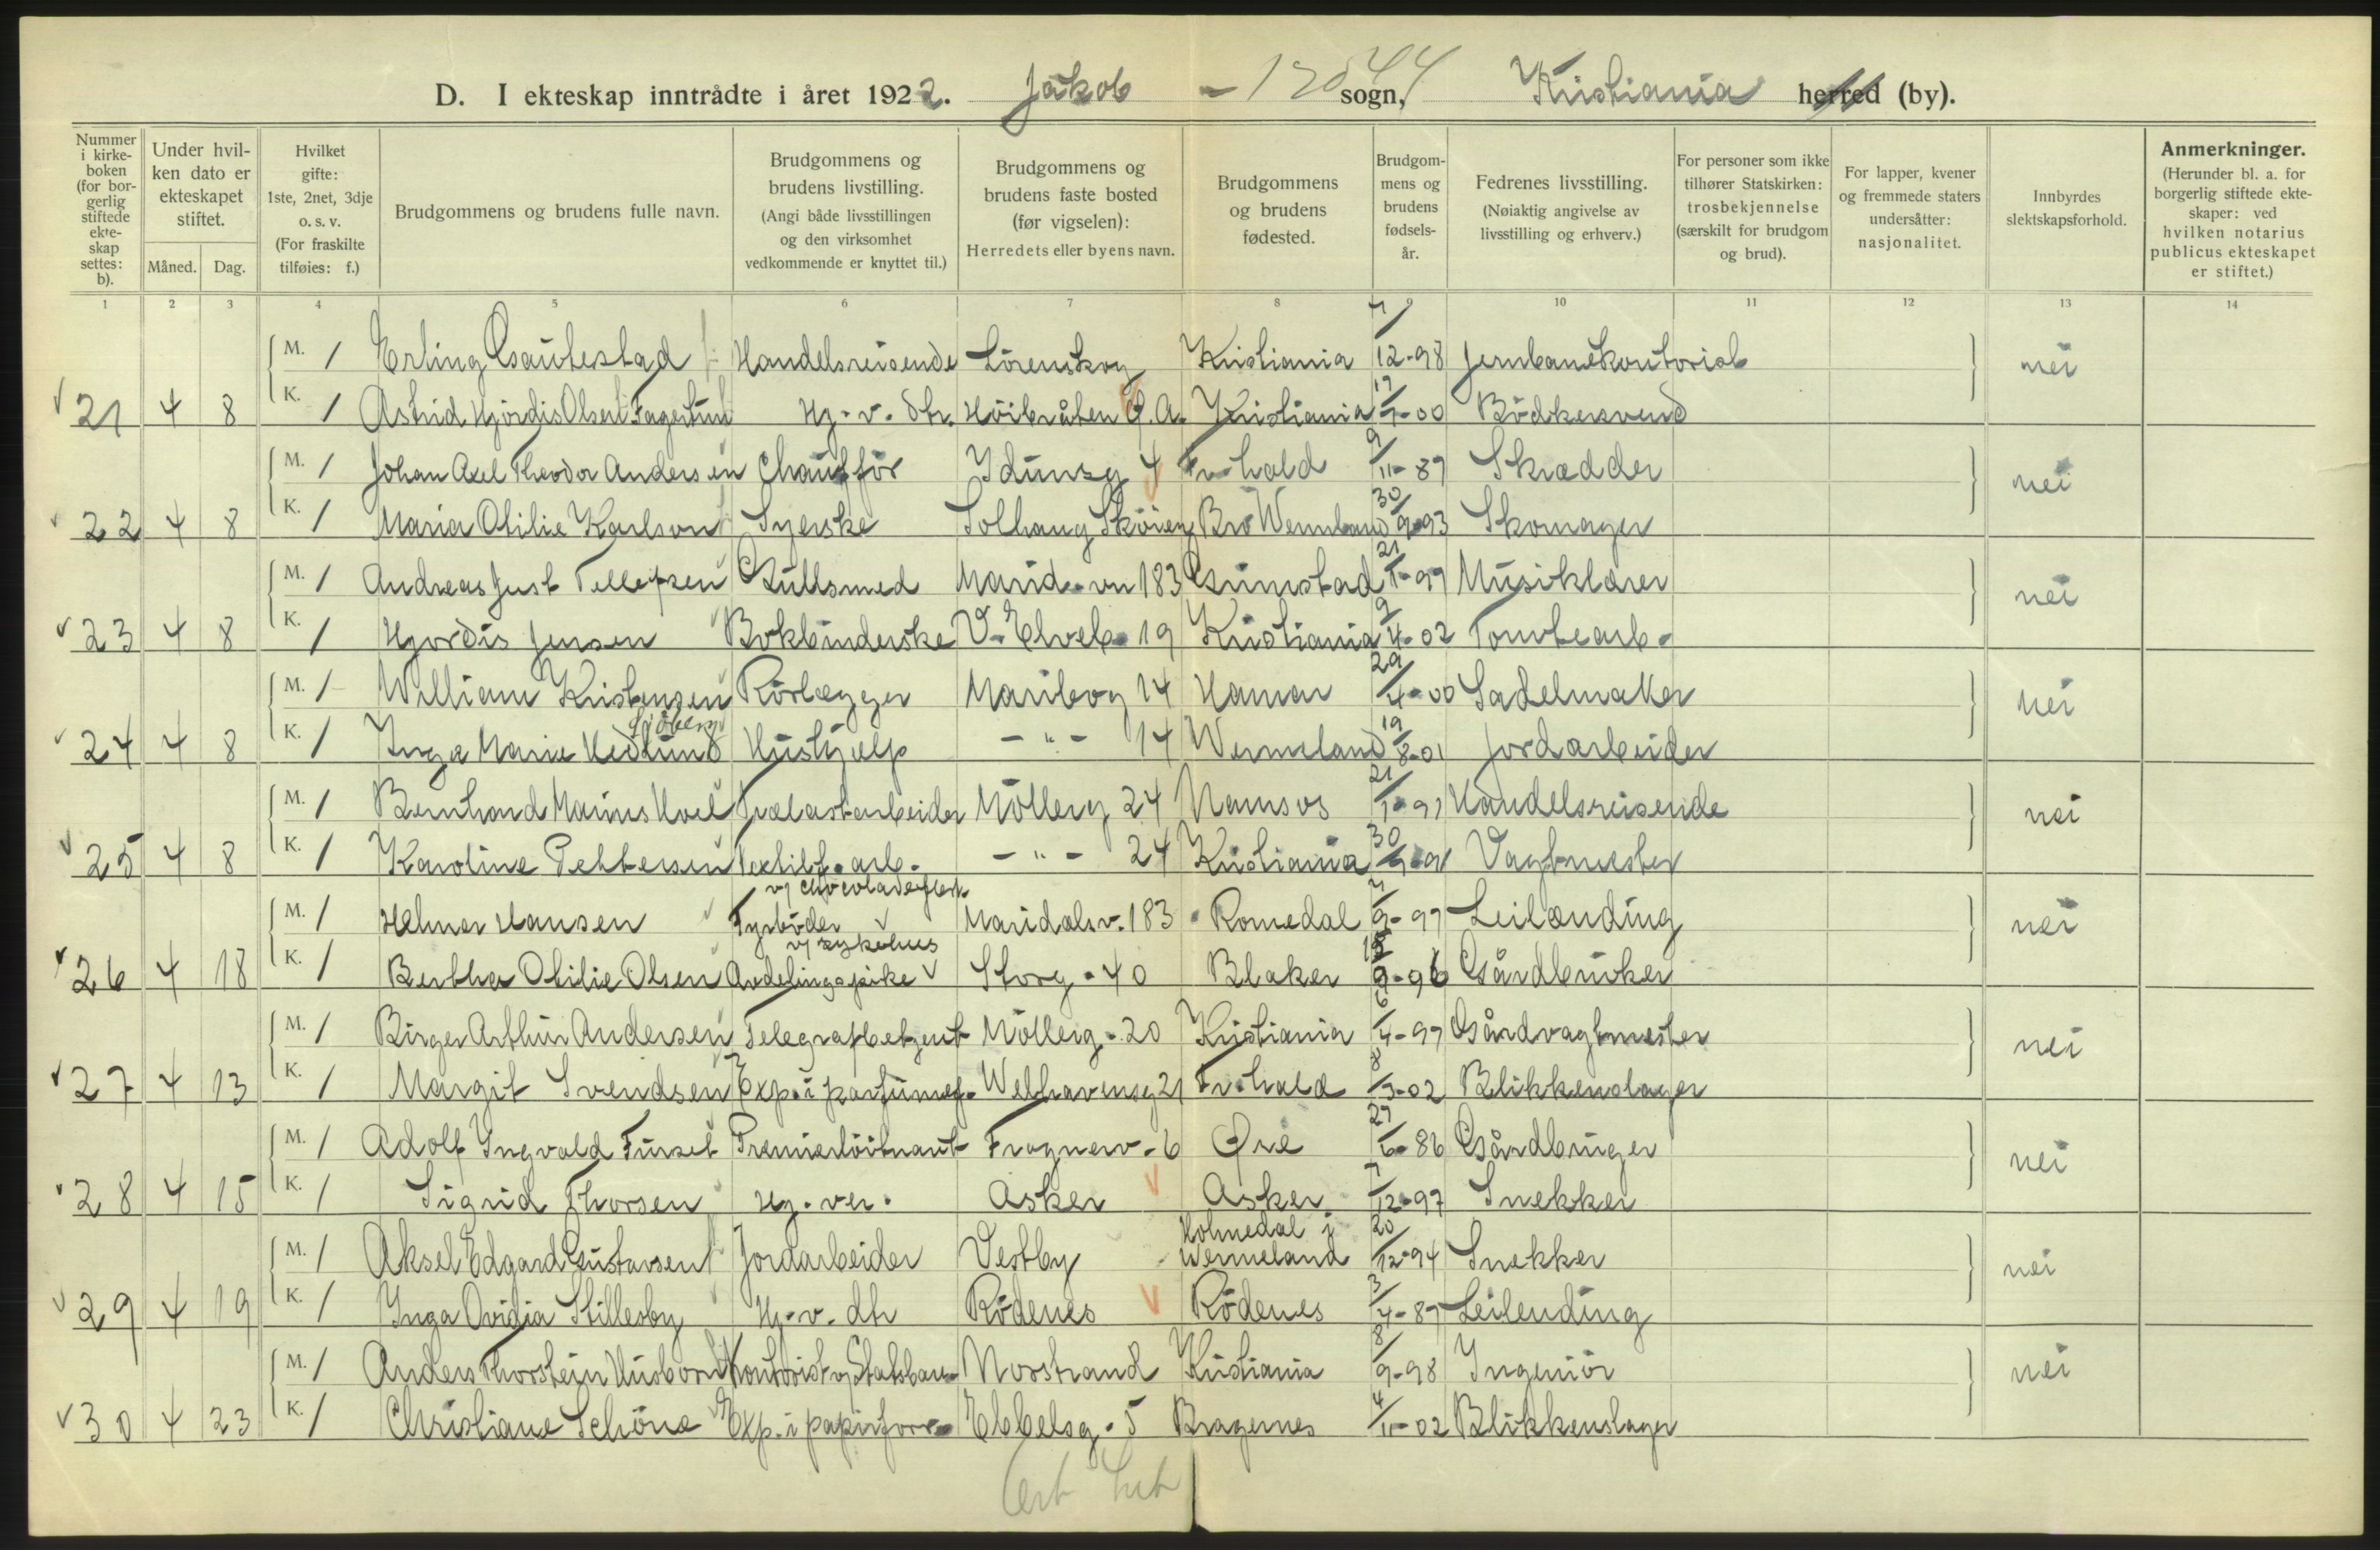 D. I ekteskap inntrådte i året 1922. Jakob sogn, Kristiania herred (by).
Nummer i kirkeboken (for borgerlig stiftede ekteskap settes: b).
Under hvilken dato er ekteskapet stiftet.
Måned. Dag.
Hvilket gifte: 1ste, 2net, 3dje o. s. v. (For fraskilte tilføies: f.)
Brudgommens og brudens fulle navn.
Brudgommens og brudens livstilling. (Angi både livsstillingen og den virksomhet vedkommende er knyttet til.)
Brudgommens og brudens faste bosted (før vigselen): Herredets eller byens navn.
Brudgommens og brudens fødested.
Brudgommens og brudens fødselsår.
Fedrenes livsstilling. (Nøiaktig angivelse av livsstilling og erhverv.)
For personer som ikke tilhører Statskirken: trosbekjennelse (særskilt for brudgom og brud).
For lapper, kvener og fremmede staters undersåtter: nasjonalitet.
Innbyrdes slektskapsforhold.
Anmerkninger. (Herunder bl. a. for borgerlig stiftede ekteskaper: ved hvilken notarius publicus ekteskapet er stiftet.)
1 2 3 4 5 6 7 8 9 10 11 12 13 14
M. 1 Erling Gautestad Handelsreisende Lörenskog Kristiania 7/12-98 Jernbanekontorist nei
21 4 8 K. 1 Astrid Hjördis Olsen Fagertun Hj.-v. dtr. Höibråten Ö.A. Kristiania 00 Bödkersvend
M. 1 Johan Axel Theodor Andersen Chaufför Idunsg 4 Fr.hald 9/11-89 Skrædder nei
22 4 8 K. 1 Maria Otilie Karlson Syerske Solhaug Sköien Bro Wermland 30/9-93 Skomager
M. 1 Andreas Just Tellefsen Gullsmed Marid.vn 183 Grimstad 21/1-99 Musiklærer nei
23 4 8 K. 1 Hjördis Jensen Bokbinderske V. Elveb. 19 Kristiania 9/4-02 Tomtearb.
M. 1 William Kristensen Rörlægger Maribog 14 Hamar 29/4-00 Sadelmaker nei
24 4 8 K. 1 Inga Marie Hedlund Sjöberg Hushjælp -"- 14 Wermland 19/8-01 Jordarbeider
M. 1 Bernhard Marius Hoel Trælastarbeider Mölleg 24 Namsos 21/1-91 Handelsreisende nei
25 4 8 K. 1 Karoline Pettersen Textilf. arb. -"- 24 Kristiania 30 91 Vagtmester
M. 1 Helmer Hansen Fyrböder v/ chocoladefabr. Maridalsv. 183 Romedal 7/9-97 Leilænding nei
26 4 18 K. 1 Bertha Otilie Olsen Avdelingspike v/ sykehus Storg. 40 Blaker 9-96 Gårdbruker
M. 1 Birger Arthur Andersen Telegrafbetjent Mölleg. 20 Kristiania 6/4-97 Gårdvagtmester nei
27 4 13 K. 1 Margit Svendsen Exp. i parfumef. Welhavensg 21 Fr.hald 8/3-02 Blikkenslager
M. 1 Adolf Ingvald Furset Premierlöitnant Frognerv. 6 Öre 27/6-86 Gårdbruger nei
28 4 15 K. 1 Sigrid Thorsen Hj. ver. Asker Asker 7/12-97 Snekker
M. 1 Aksel Edgard Gustavsen Jordarbeider Vestby Holmedal i Wermeland 20/12-94 Snekker nei
29 4 19 K. 1 Inga Ovidia Stillesby Hj.-v. dtr Rödenes Rödenes 3/4-87 Leilending
M. 1 Anders Thorstein Husborn Kontorist v/ Statsban. Norstrand Kristiania 8/9-98 Ingeniör nei
30 4 23 K. 1 Christiane Schöne Exp. i papirforr. Ebbelsg. 5 Bragernes 4/11-02 Blikkenslager